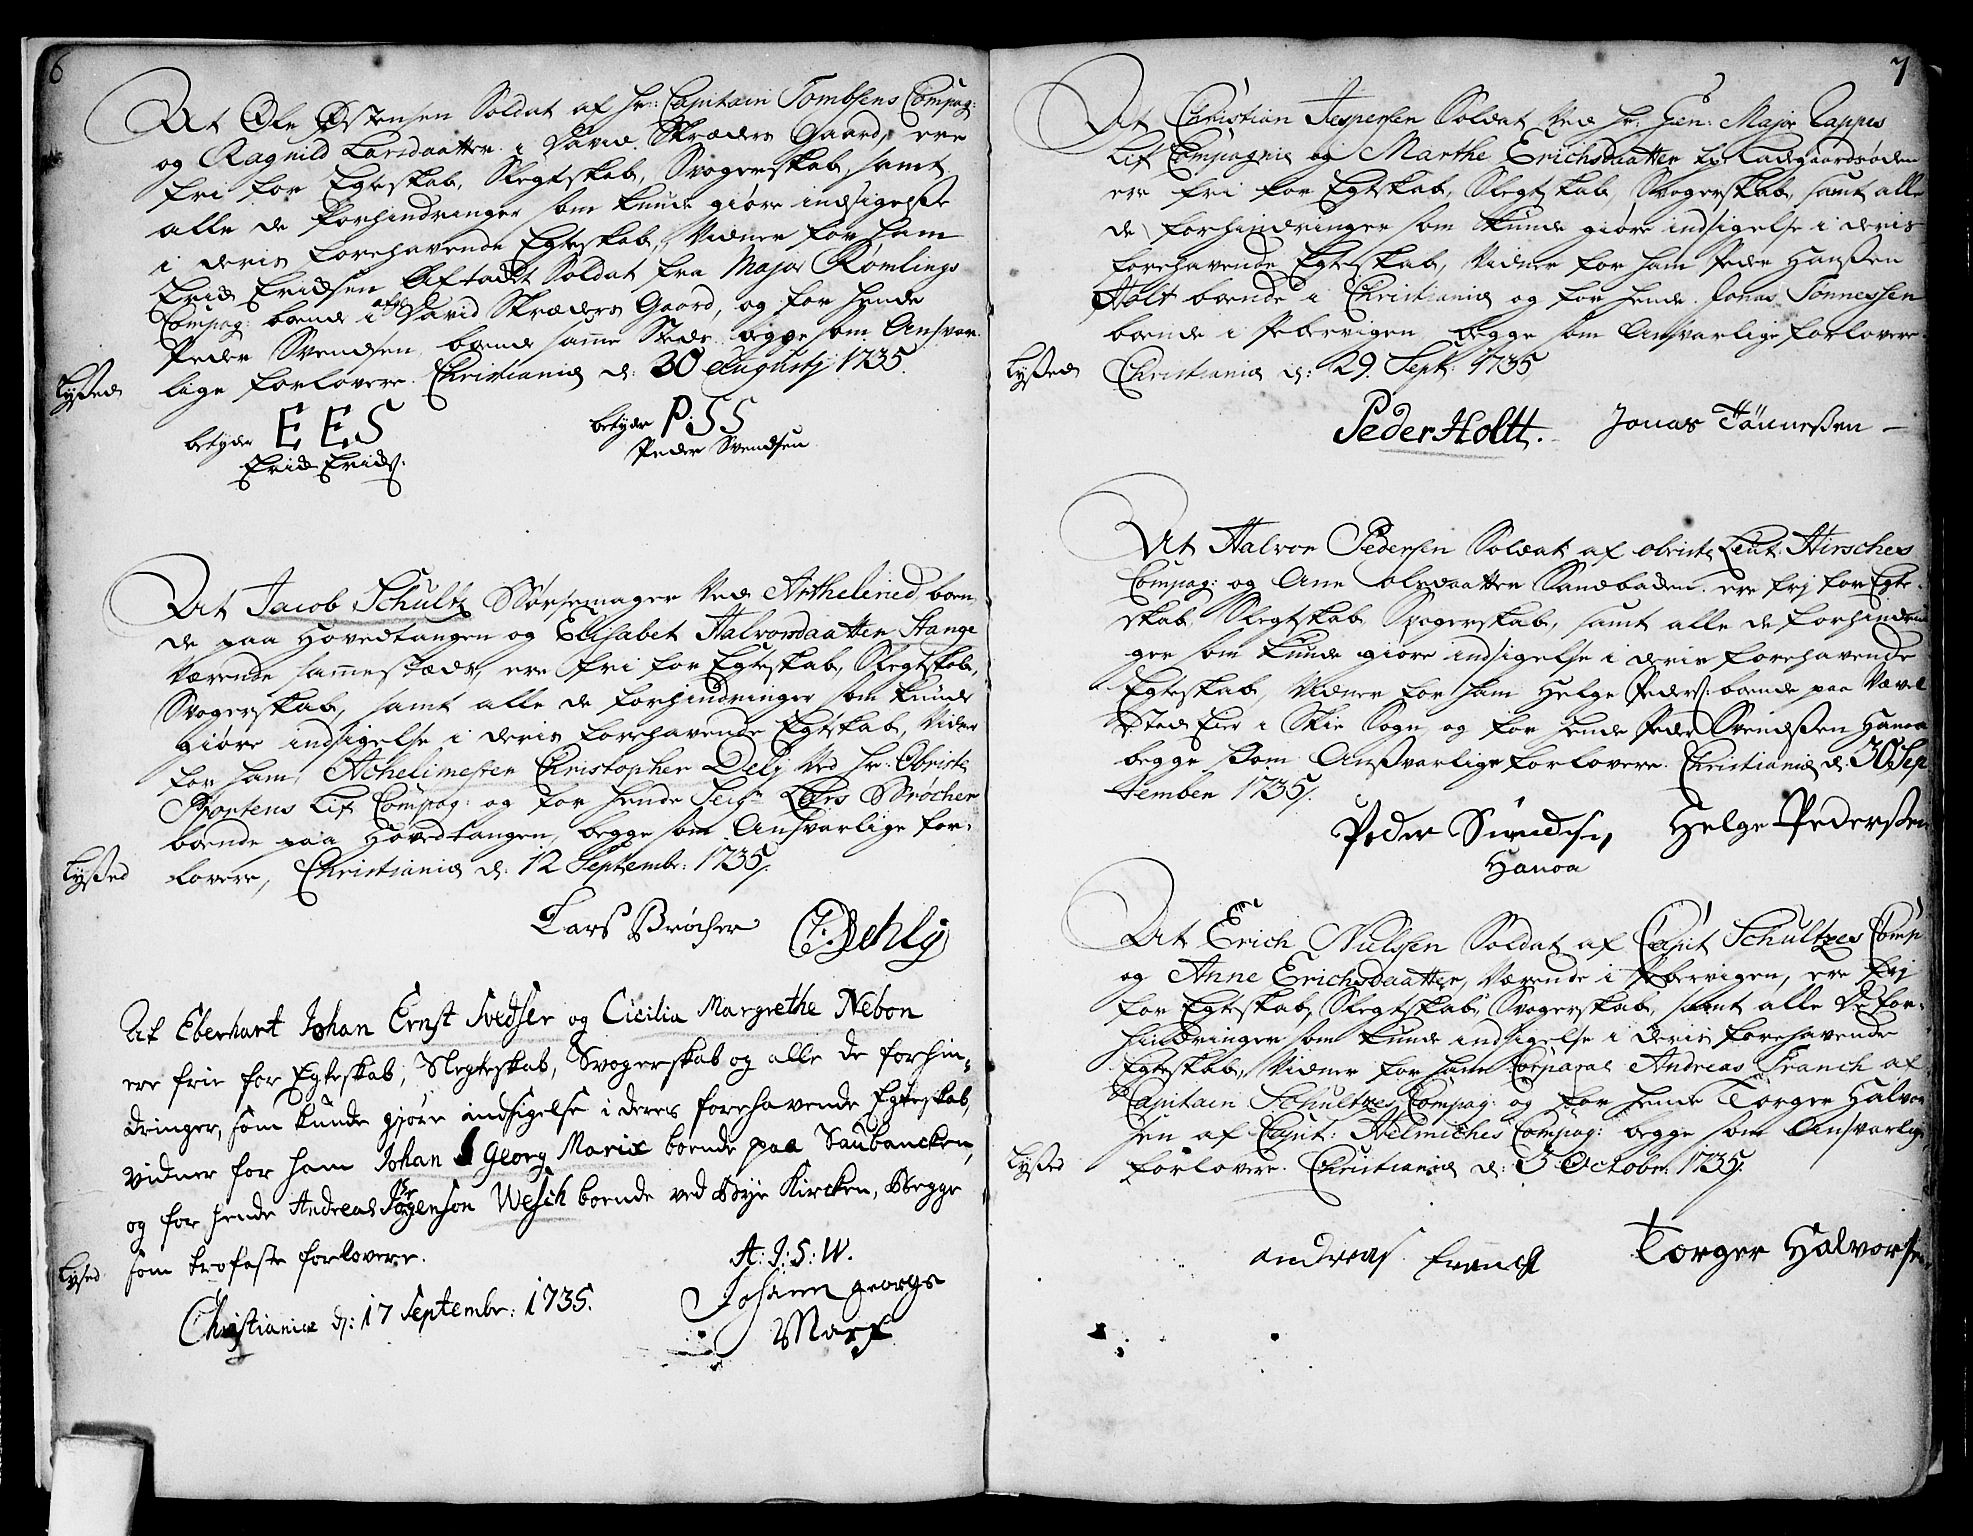 6
At Ole Østensen Soldat af Hr: Capitain Tombsens Compag:
og Ragnild Larsdaatter i David Skræders Gaard, ere
fri for Egteskab, Slegtskab, Svogerskab, samt
alle de forhindringer som kunde giøre indsigelse
i deris forehavende Egteskab, Vidner for ham
Erich Erichsen Aftackt Soldat fra Major Römlings
Compag: boende i afg: David Skræders Gaard, og for hende
Peder Svendsen boende samme Stede begge som Ansvar-
lige forlovere. Christiania d: 30 Augustj 1735.
Lyßed
betyder EES
Erich Erichs:
betyder P.SS
Peder Svendsen
At Jacob Schultz Børsemager ved Arthelined boen-
de paa Hovedtangen og Elisabet Halvorsdaatter Stange
Værende sammestæds, ere fri for Egteskab, Slegtskab,
Svogerskab, samt alle de forhindringer som kunde
giøre indsigelse i deris forehavende Egteskab, Vidner
for ham Achelimester Christopher Delj Ved Hr. Obriste
Lif Compag: og for hende Lars Brøcher
boende paa Hovedtangen, begge som Ansvarlige for-
lovere, Christiania d: 12 Septembr: 1735.
Lyßed
Lars Brøcher C: Dehly
At Eberhart Johan Ernst Svedser og Cicilia Margrethe Nebon
ere frie for Egteskab, Slegteskab, Svogerskab og alle de forhin-
dringer, som kunde gjöre indsigelse i deres forehavende Egteskab,
vidner for ham Johan Georg Marix boende paa Saubancken,
og for hende Andreas Jørgenson Wesch boende ved Bye Kircken, Begge
som trofaste forlovere.
Lysed
A: J: S: W.
Christianiæ d: 17 Septembr: 1735.
Johan georgs
Marx
7
At Christian Jespersen Soldat ved Hr. Gen: Major Zappes
Lif Compagnie og Marthe Erichsdaatter fra Ladegaardsøden
ere fri for Egteskab, Slegtskab, Svogerskab, samt alle
de forhindringer som kunde giøre indsigelse i deris
forehavende Egteskab, Vidner for ham Peder Hanßen
Holt boende i Christiania og for hende Jonas Tønnessen
boende i Pebervigen begge som Ansvarlige forlovere.
Lyßed Christiania d: 29. Sept: 1735
Peder Holtt. Jonas Tönneßen
At Halvor Pedersen Soldat af obriste Lieut: Hirsches
Compag: og Ane olsdaatter Sandbaden ere frj for Egte-
skab, Slegtskab, Svogerskab, samt alle de forhindrin-
ger som kunde giøre indsigelse i deris forehavende
Egteskab, Vidner for ham Helge Peders: boende paa Vevel
Stad Eier i Skie Sogn og for hende Peder Svendßen Hanoa
begge som Anßvarlige forlovere. Christiania d. 30 Sep
tember 1735.
Peder Svendsen Helge Pederßen
Hanoa
At Erich Nielssen Soldat af Capit Schultzes Comp
og Anne Erichsdaatter, Værende i Pebervigen, ere frj
for Egteskab, Slegtskab, Svogerskab, samt alle de for-
hindringer som kunde indsigelse i deris forehavende
Egteskab, Vidner for ham Corporal Andreas Franch af
Capitain Schultzes Compag: og for hende Torger Halvor
sen af Capit: Helmiches Compag: begge som Ansvarlige
forlovere. Christiania d: 3 Octobr: 1735.
Lyßed
andreas franck Torger Halvorsen